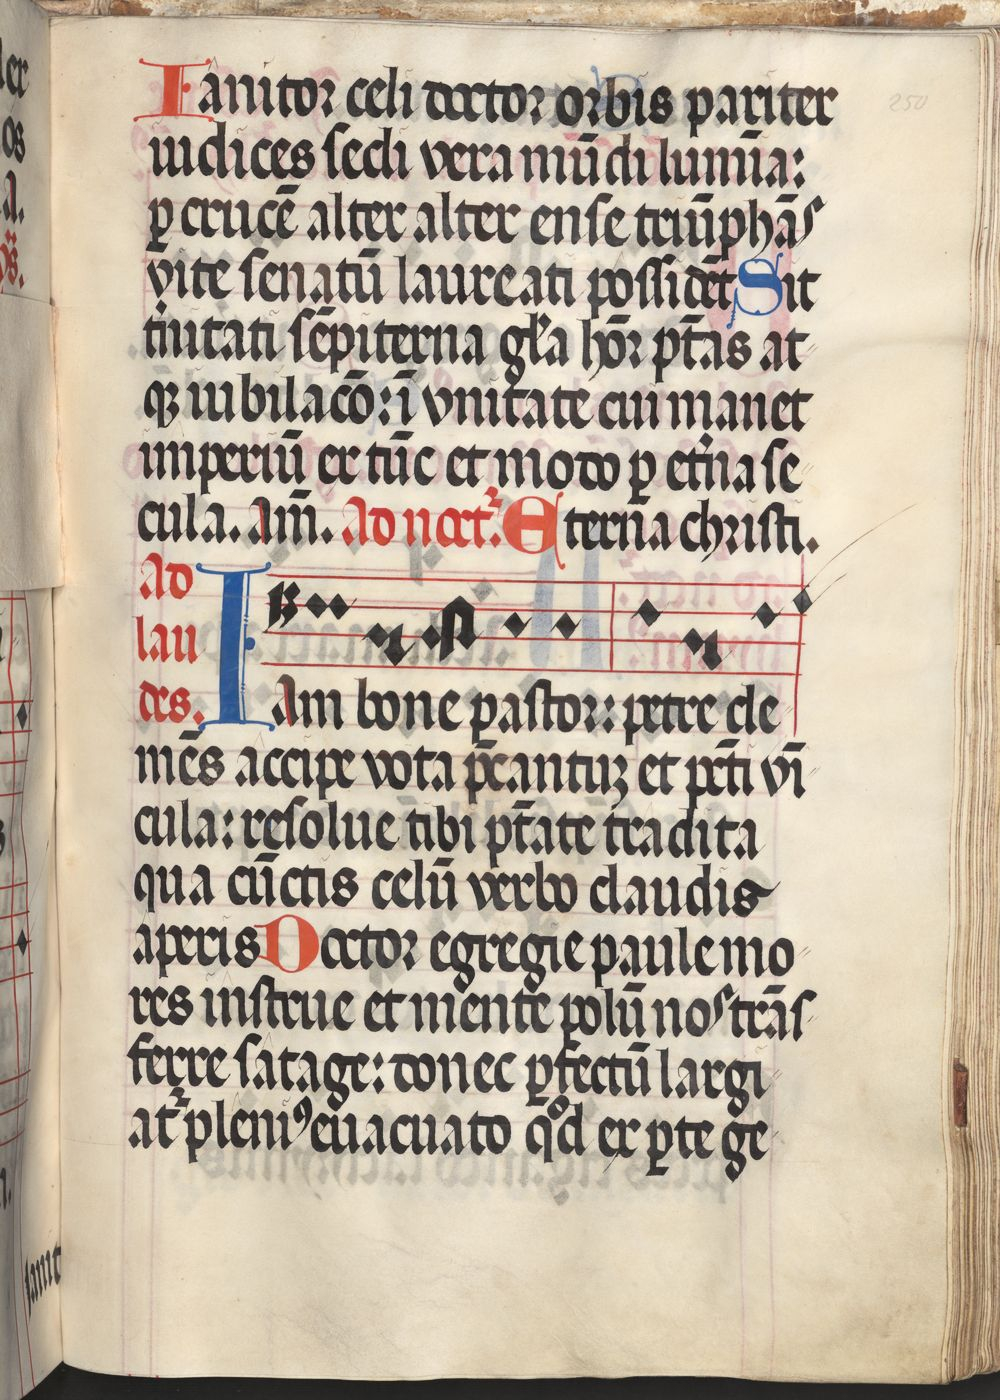 250
Ianitor celi doctor orbis pariter
iudices secli vera mūdi lumīa:
ꝑ crucē alter alter ense triūphās
vite senatū laureati possidēt Sit
tͥnitati sēpiterna gl̄a hōꝛ pt̄as at
qꝫ iubilacō: ī vnitate cui manet
imperiū ex tūc et modo ꝑ et̄na se
cula. Am̄. Ad noct᷑. Eterna christi.
Ad
lau
des.
Iam bone pastor: petre cle
mēs accipe vota p̄cantiuꝫ et pcti vī
cula: resolue tibi pt̄ate tradita
qua cūctis celū verbo claudis
aperis Doctor egregie paule mo
res instrue et mente polū nos trās
ferre satage: donec ꝑfectū largi
at᷑ pleniꝰ euacuato qͦd ex ꝑte ge